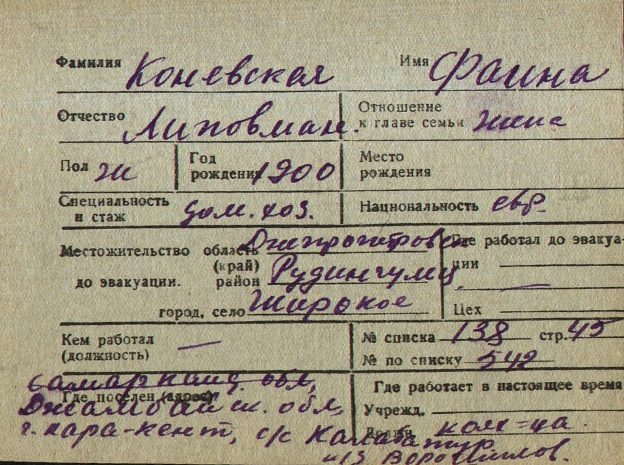 Фамилия Коневская Имя Фаина
Отчество Липовман. Отношение к главе семьи жена
Пол ж Год рождения 1900 Место рождения
Специальность и стаж дом. хоз. Национальность евр.
Местожительство область Днепропетровск Где работал до эвакуа-
(край) ции
до эвакуации. район —
город, село Широкое Цех
Кем работал (должность) — № списка 138 стр. 45
№ по списку 542
Самарканд. обл, Где работает в настоящее время
Где поселен (адрес)
Джамбай ск. обл, Учрежд.
г. Кара-кент, с/с Должн. кол=ца
к/з Ворошилов.